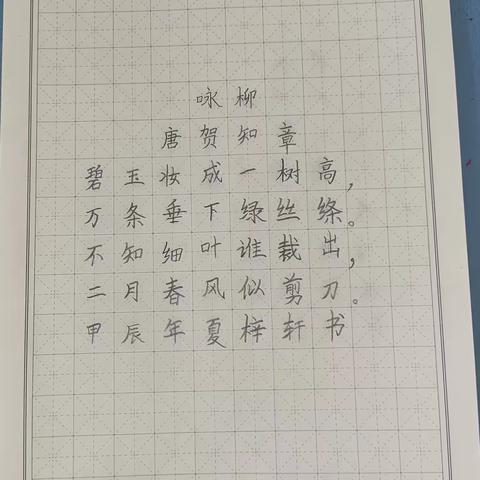 咏柳
唐贺知章
碧玉妆成一树高,
万条垂下绿丝绦。
不知细叶谁裁出,
二月春风似剪刀。
甲辰年夏梓轩书